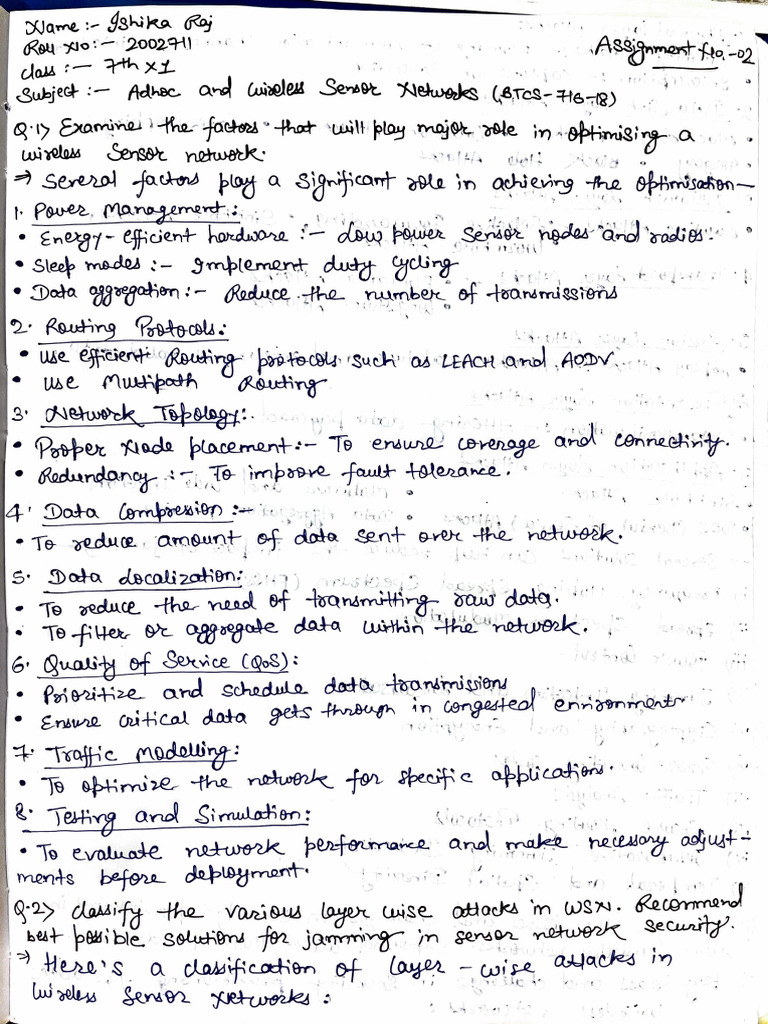 Name :- Ishika Raj
Roll No :- 2002711
Assignment No.-02
Class :- 7th X1
Subject :- Adhoc and Wireless Sensor Networks (BTCS-716-18)
Q.1> Examine the factors that will play major role in optimising a
wireless sensor network.
⇒ Several factors play a significant role in achieving the optimisation—
1. Power Management :
• Energy-efficient hardware :- Low power sensor nodes and radios.
• Sleep modes :- Implement duty cycling
• Data aggregation :- Reduce the number of transmissions
2. Routing Protocols :
• Use efficient Routing protocols such as LEACH and AODV.
• Use Multipath Routing
3. Network Topology :
• Proper Node placement :- To ensure coverage and connectivity.
• Redundancy :- To improve fault tolerance.
4. Data Compression :-
• To reduce amount of data sent over the network.
5. Data Localization :
• To reduce the need of transmitting raw data.
• To filter or aggregate data within the network.
6. Quality of Service (QoS) :
• Prioritize and schedule data transmissions
• Ensure critical data gets through in congested environments
7. Traffic Modelling :
• To optimize the network for specific applications.
8. Testing and Simulation :
• To evaluate network performance and make necessary adjust-
ments before deployment.
Q.2> Classify the various layer wise attacks in WSN. Recommend
best possible solutions for jamming in sensor network security.
⇒ Here's a classification of layer-wise attacks in
Wireless Sensor Networks :